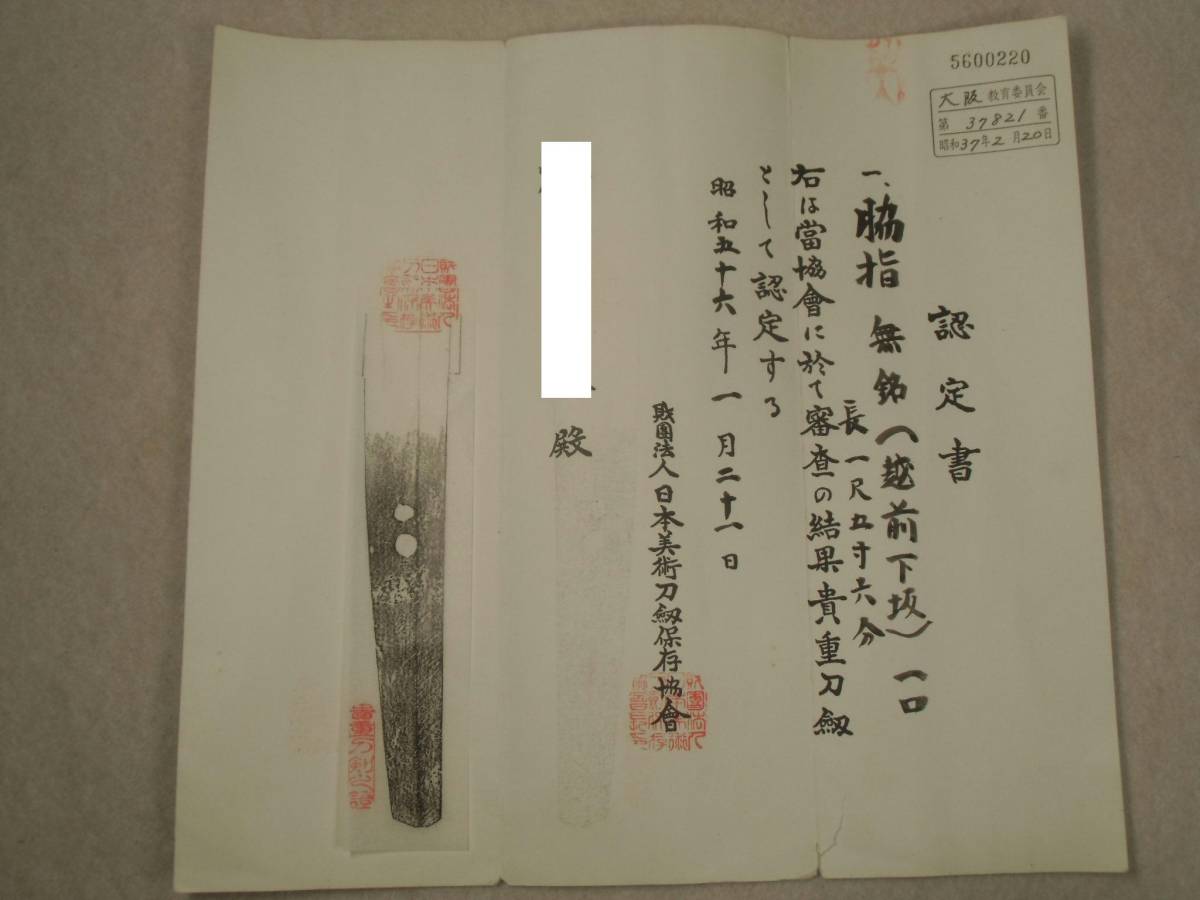 5600220
大阪教育委員会
第37821番
昭和37年2月20日
認定書
一、脇指 無銘(越前下坂) 一口
長一尺五寸六分
右は當協會に於て審査の結果貴重刀劔
として認定する
昭和五十六年一月二十一日
財團法人日本美術刀劔保存協會
殿
貴重刀剣之證